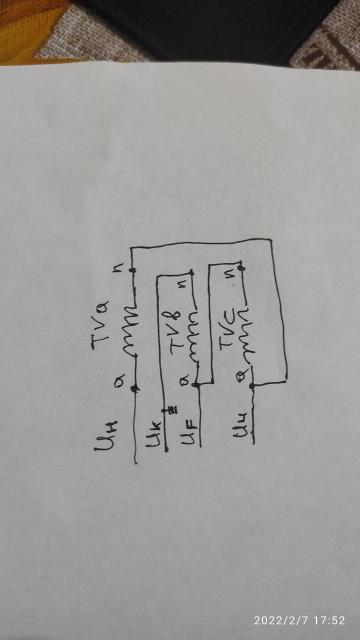 Uн a TVa n
Uк
UF a TVв n
Uи a TVc n
2022/2/7 17:52